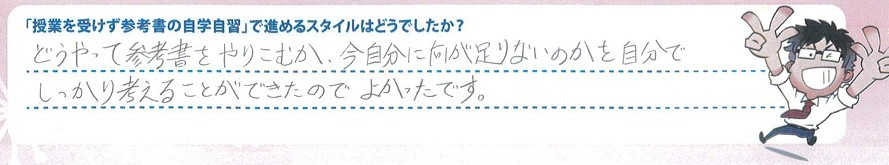 「授業を受けず参考書の自学自習」で進めるスタイルはどうでしたか？
どうやって参考書をやりこむか、今自分に何が足りないのかを自分で
しっかり考えることができたのでよかったです。